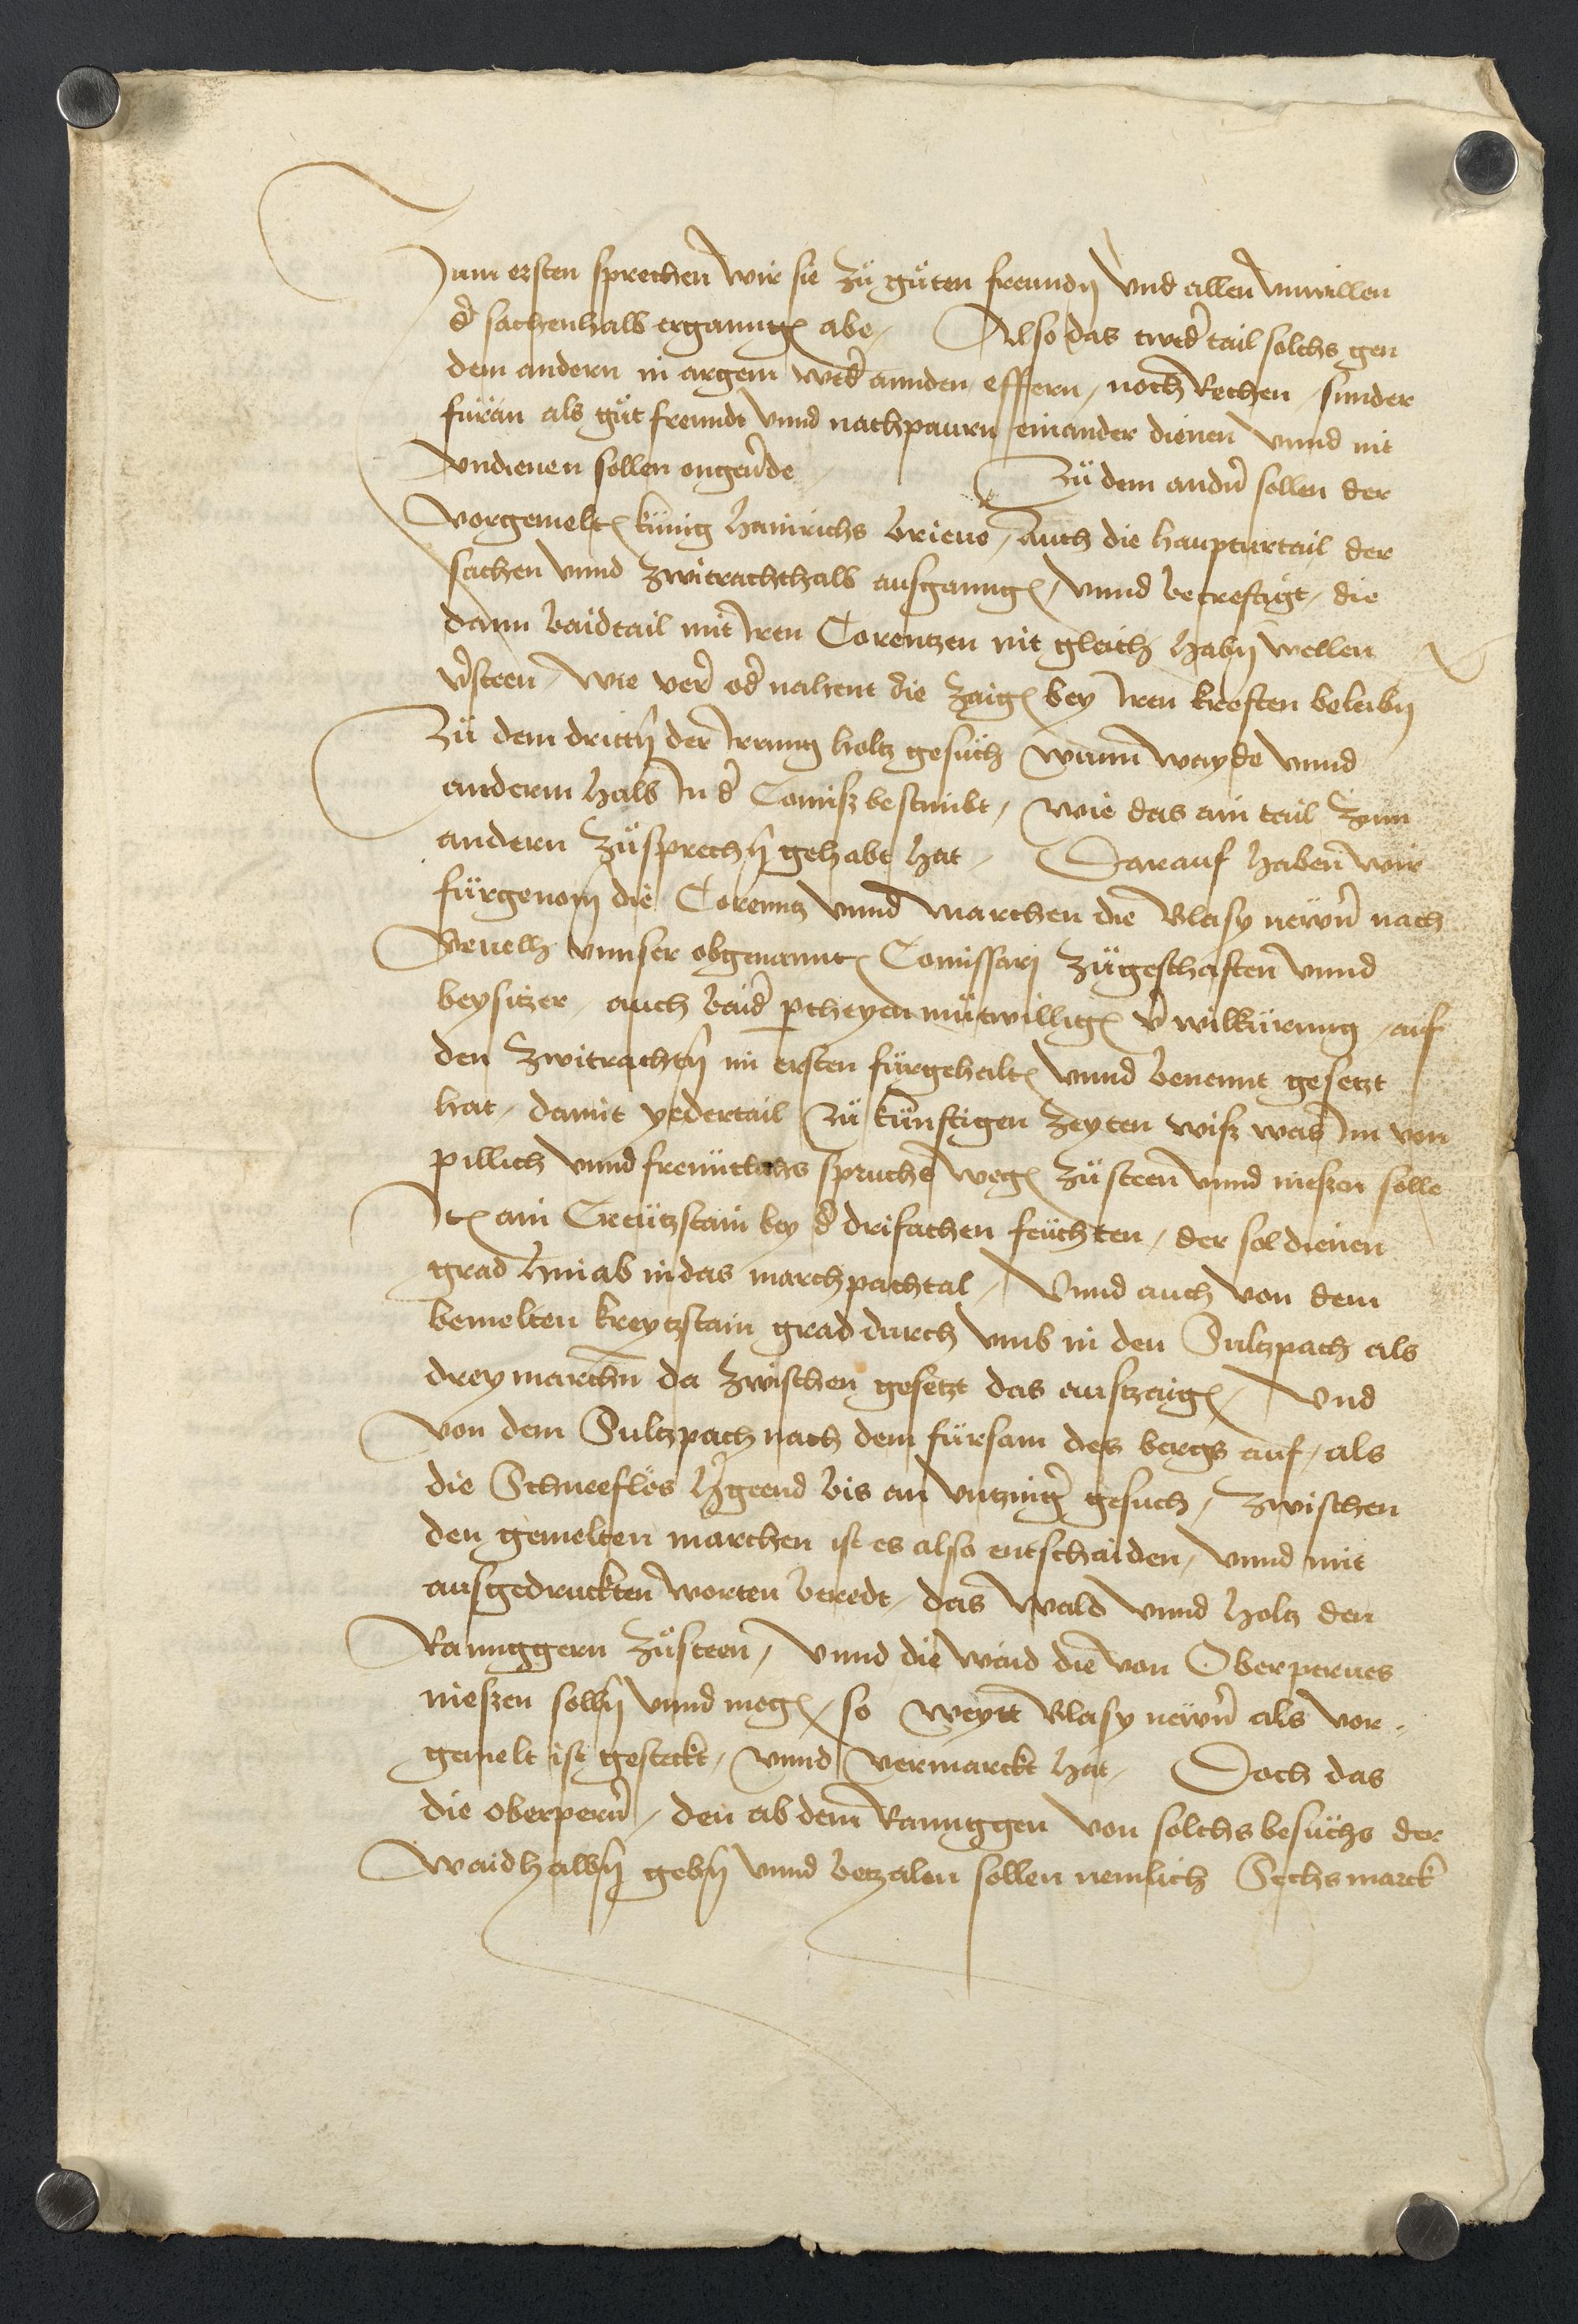 Zum ersten sprechen wir sie zů gůten freundn vnd allen vnwillen
d' sachenhalb erganngen abe / Also das twed' tail solchs gen
dem andern in argem wed' annden effern / noch Rechen / sunder
füran als gůt freundt vnnd nachpaurn einander dienen vnnd nit
vndienen sollen ongeu'de Zů dem andern sollen der
vorgemelten künig hainrichs brieue / Auch die haupturtail der
sachen vnnd zwitrachthalb ausganngen / vnnd becreftigt / die
dann baidtail mit Iren Corentzen nit gleich habn wellen
v'steen / wie ver od' nahent die zaigen bey Iren kreften beleibn
Zů dem dritten der Irrung holtz gesůch wunn wayde vnnd
anderm halb In d' Comiss bestimbt / wie das ain tail zum
andern zůsprechn gehabt hat / Darauf haben wir
fürgenomen die Corenntz vnnd marchen die Blasy newn' nach
Beuelh vnnser obgenannten Comissarj zůgeschafften vnnd
beysitzer / auch baid' ptheyen můtwilligen v'wilkürung / auf
den zwitrachtn im ersten fürgehalten vnnd benennt gesetzt
hat / damit yedertail zů künftigen zeyten wiss was Im von
pillich vnnd freuntlichs spruchs wegen zůsteen vnnd niessen solle
Item ain Creützstain bey d' drifachen feüchten / der sol dienen
grad hinab in das marchpachtal / Vnnd auch von dem
bemelten kreytzstain grad durch vmb in den Sultzpach als
drey marchn da zwischen gesetzt das auszaigen / Vnd
von dem Sultzpach nach dem fürsam des bergs auf / als
die Schneeflös h'geend bis an vntzinger gesuch / zwischen
den gemelten marchen ist es also entschaiden / vnnd mit
ausgedruckten worten beredt / das wald vnnd holtz den
Rannggern zůsteen / vnnd die waid die von Oberperues
niessen sollen vnnd mogen / so weytt Blasy newn' als vor-
gemelt ist gesteckt / vnnd vermarckt hat / Doch das
die oberpern' / den ab dem Rannggen von solchs besůchs der
Waidhalbn gebn vnnd betzalen sollen nemlich Sechs marck